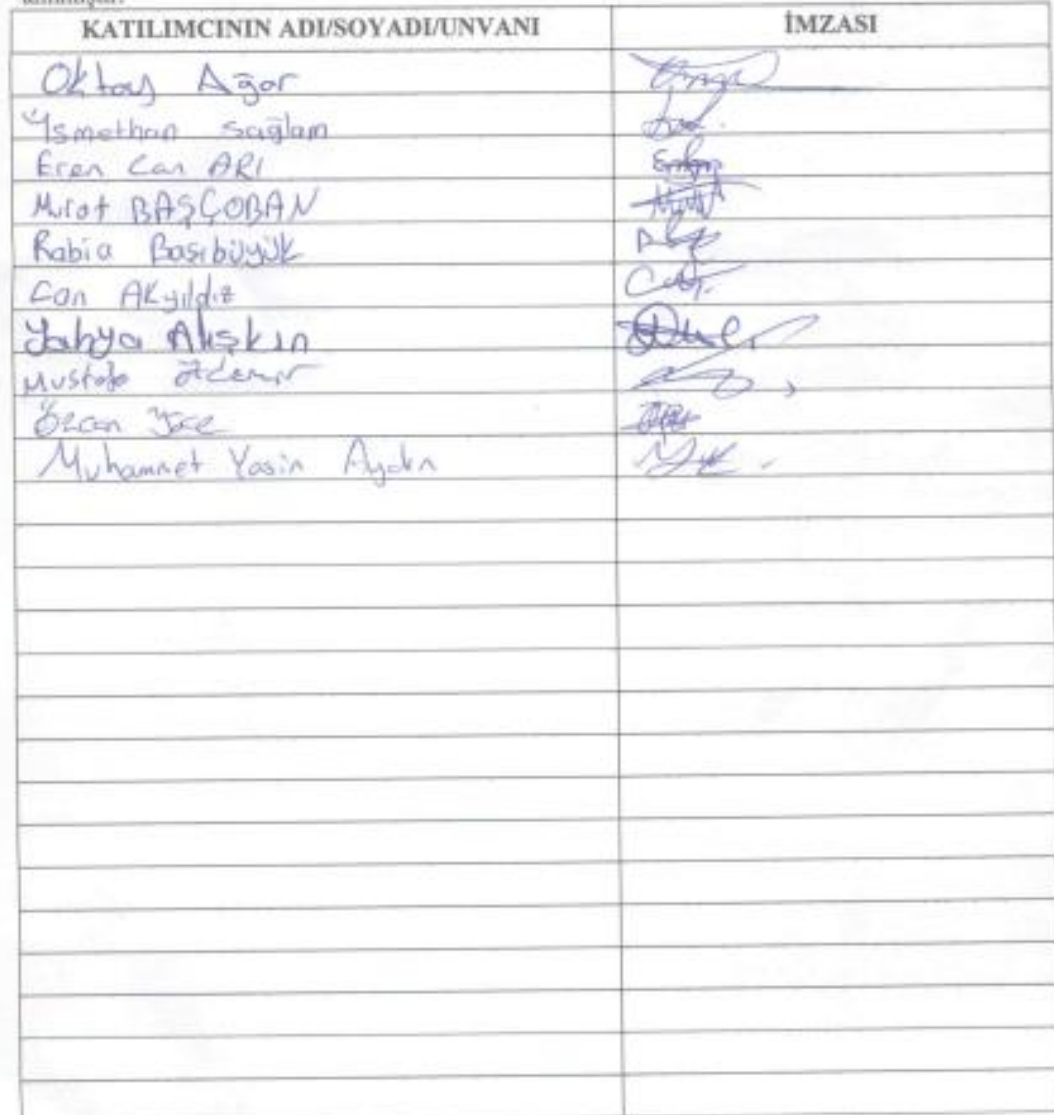 KATILIMCININ ADI/SOYADI/UNVANI İMZASI
Oktay Ağar
İsmethan sağlam
Eren Can ARI
Murat BAŞÇOBAN
Rabia Başıbüyük
Can AKyıldız
Yahya Alışkın
Mustafa Özdemir
Özcan
Muhammet Yasin Aydın